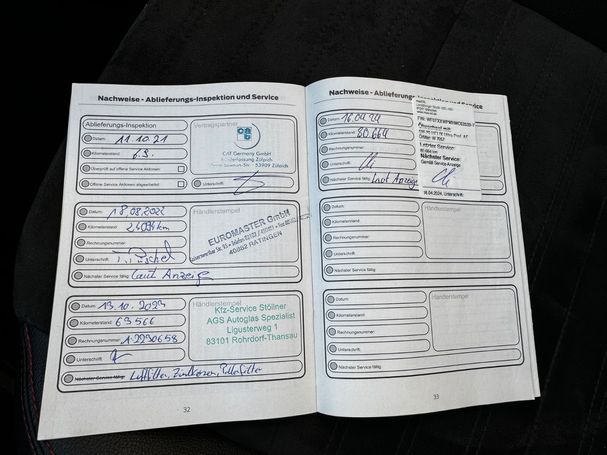 Nachweise - Ablieferungs-Inspektion und Service
Ablieferungs-Inspektion
Datum: 11.10.21
Kilometerstand:
Überprüft auf offene Service Aktionen
Offene Service Aktionen abgearbeitet
Vertragspartner
CAT Germany GmbH
Niederlassung Zülpich
53909 Zülpich
Unterschrift:
Datum: 18.08.2022
Kilometerstand:
Rechnungsnummer:
Unterschrift:
Nächster Service fällig: laut Anzeige
Händlerstempel
EUROMASTER GmbH
40882 RATINGEN
Datum: 13.10.2023
Kilometerstand: 63566
Rechnungsnummer: 12230658
Unterschrift:
Nächster Service fällig: Luftfilter, Zündkerzen, Pollenfilter
Händlerstempel
Kfz-Service Stöllner
AGS Autoglas Spezialist
Ligusterweg 1
83101 Rohrdorf-Thansau
32
Nachweise - Ablieferungs-Inspektion und Service
Datum: 16.04.24
Kilometerstand: 80.664
Rechnungsnummer:
Unterschrift:
Nächster Service fällig: laut Anzeige
Letzter Service:
Nächster Service:
Gemäß Service-Anzeige
16.04.2024, Unterschrift:
Datum:
Kilometerstand:
Rechnungsnummer:
Unterschrift:
Nächster Service fällig:
Händlerstempel
Datum:
Kilometerstand:
Rechnungsnummer:
Unterschrift:
Nächster Service fällig:
Händlerstempel
33